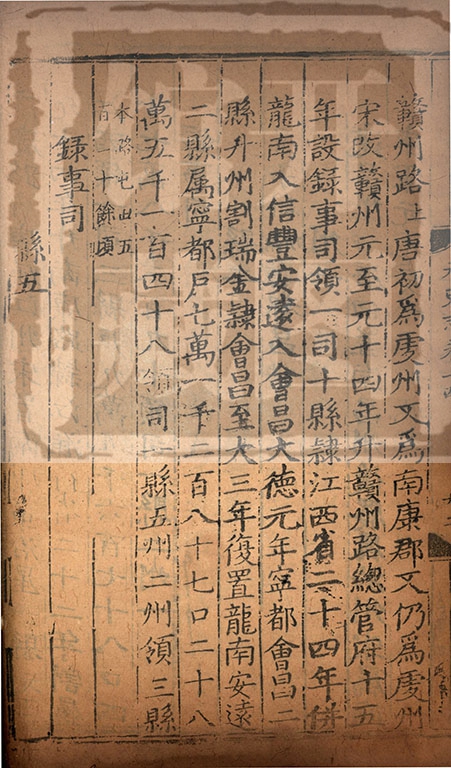 贛州路上唐初爲虔州又爲南康郡又仍爲虔州
宋改贛州元至元十四年升贛州路總管府十五
年設錄事司領一司十縣隷江西省二十四年併
龍南入信豐安遠入會昌大德元年寧都會昌二
縣升州割瑞金隷會昌至大三年復置龍南安遠
二縣属寧都户七萬一千二百八十七口二十八
萬五千一百四十八領司一縣五州二州領三縣
本路屯田五
百二十餘頃
錄事司
縣五